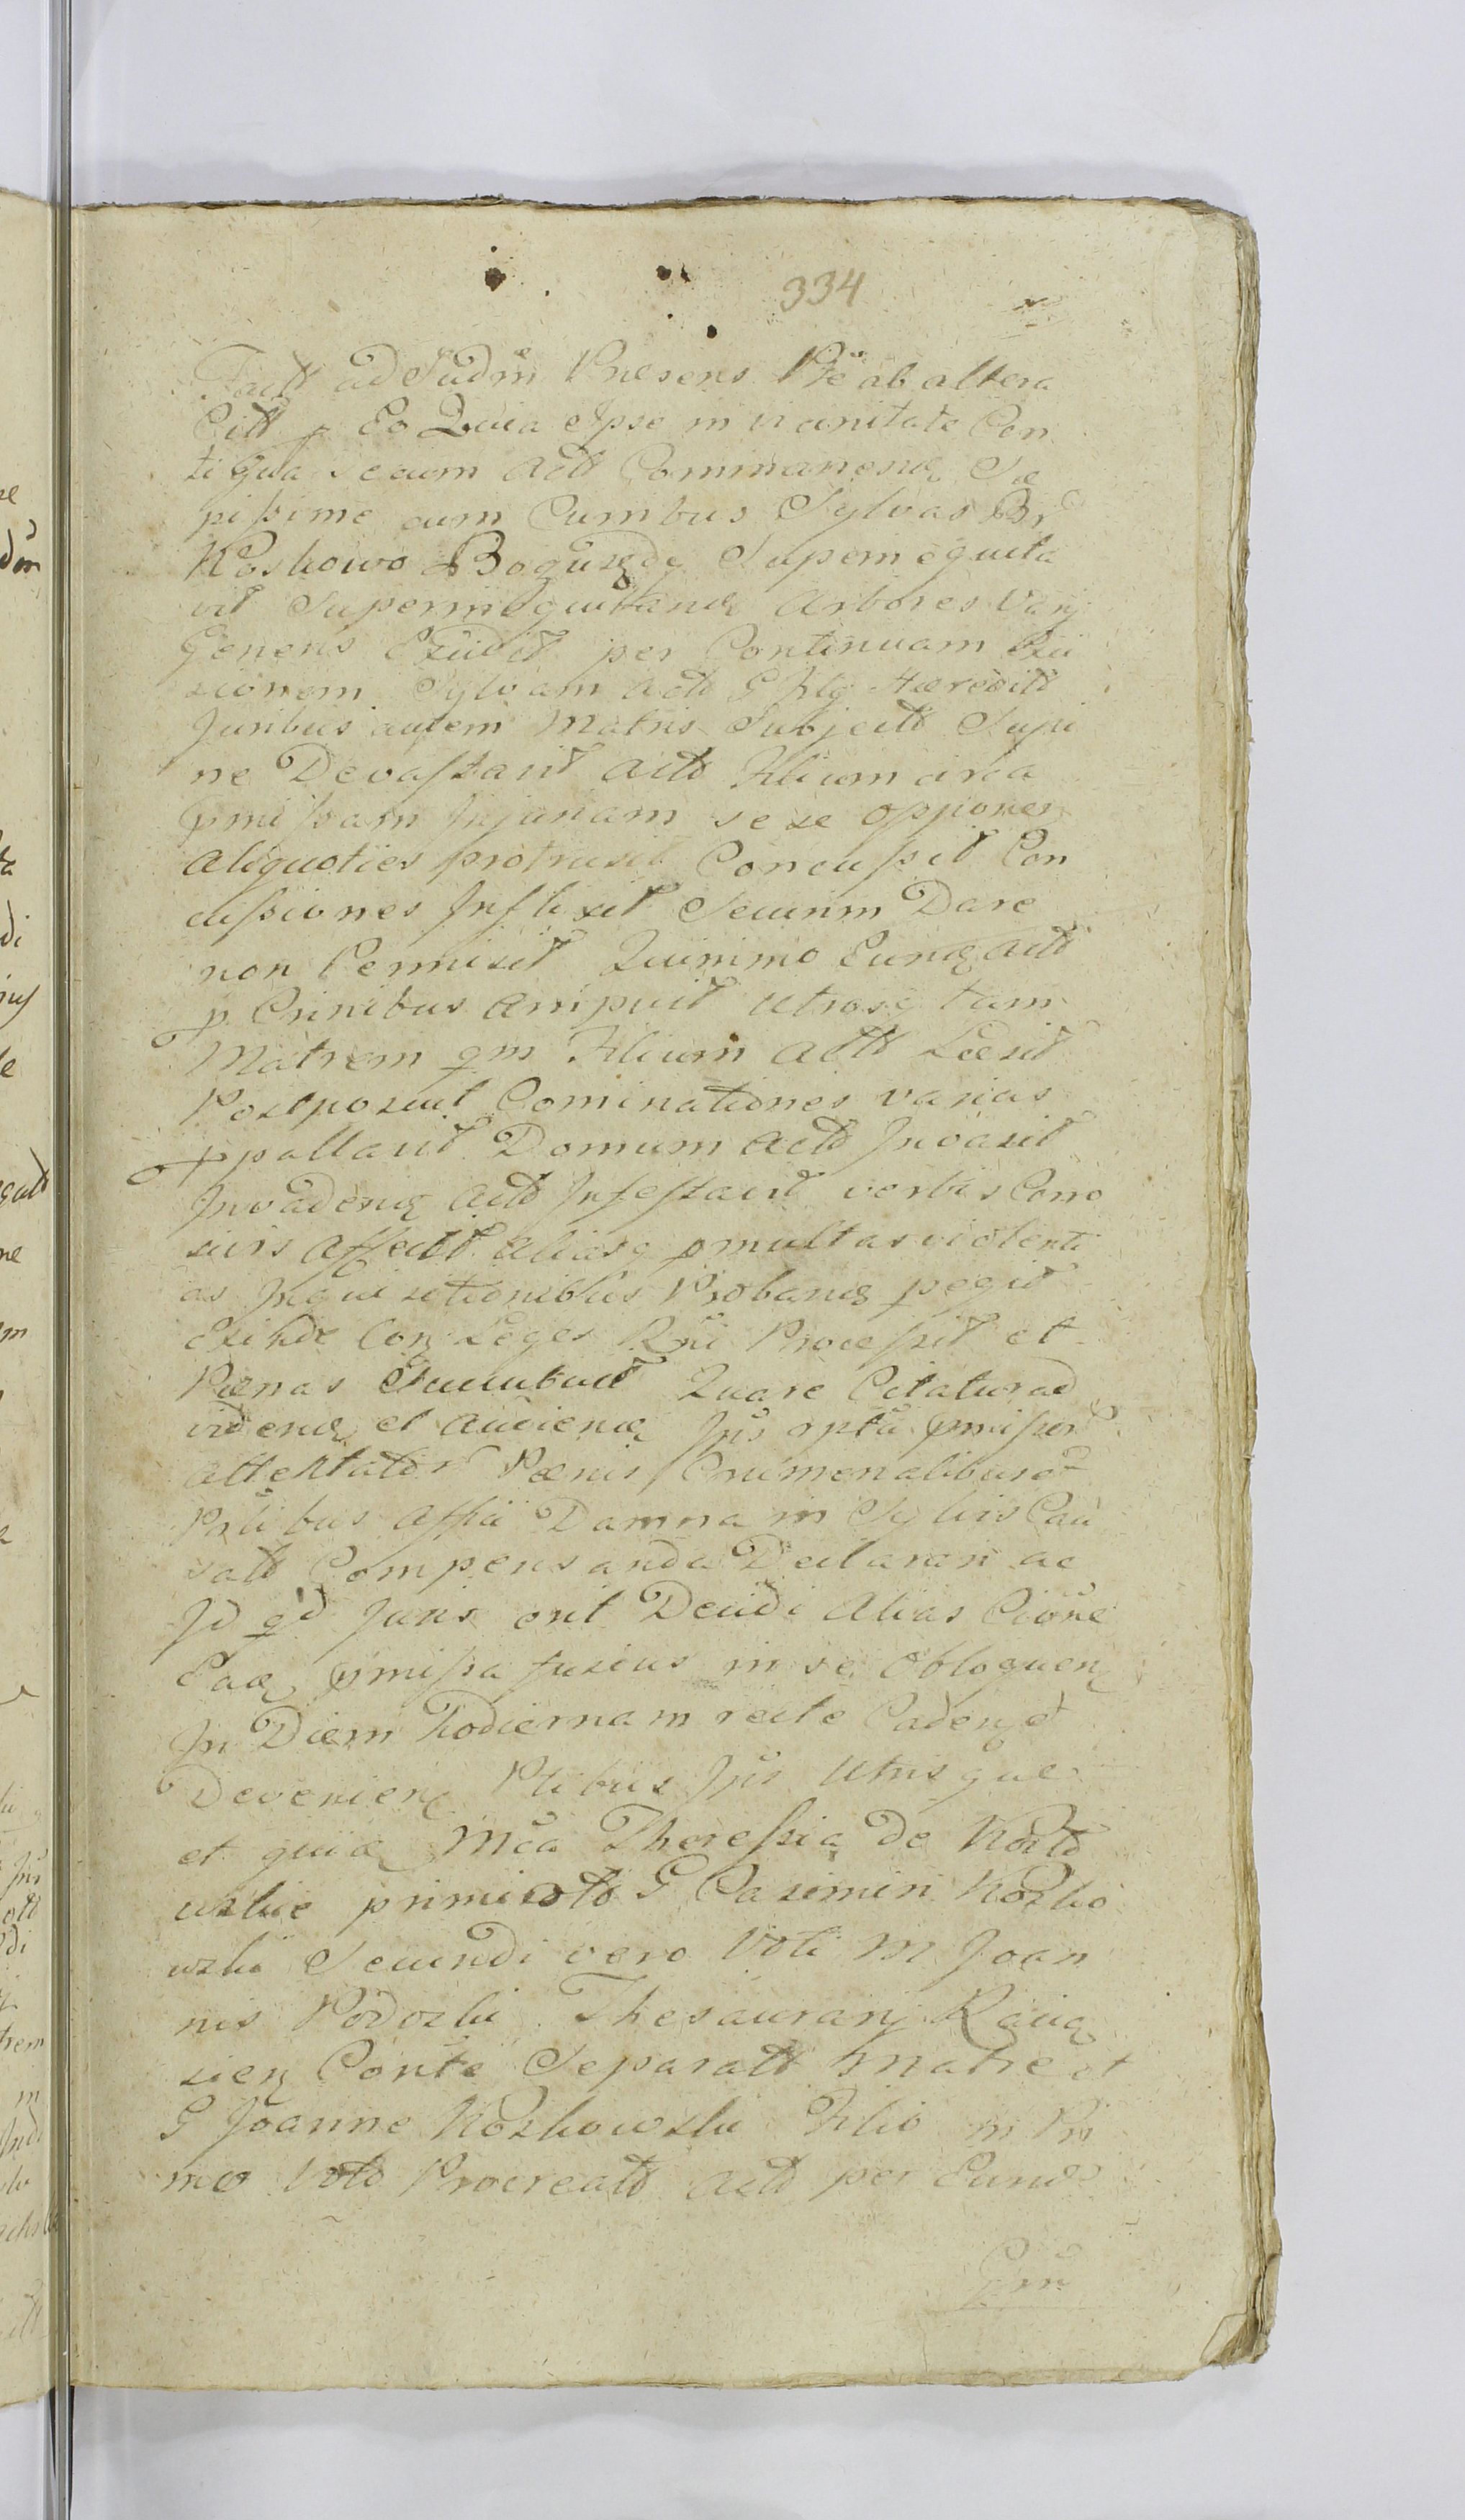 334
Factt ad Judm Præsens Pte ab altera
Citt p Eo Quia Ipse in vicinitate Con
tigua secum Actt Commanens Sæ
pissime cum Curribus Sylvas Br
Koskowo Boguszdy Superinequita
vit Superinequitans arbores varij
Generis Excidit per Continuam Exci
sionem Sylvam Actt G Filij Hæreditt
Juribus autem Matris Subjectt Supi
ne Devastavit Actt Filium circa
pmissam Injuriam sese opponen
aliquoties protrusit Concussit Con
cussiones Inflixit Securim Dare
non Permisit Quinimo Eund Actt
p Crinibus arripuit Utrosq tam
Matrem qm Filium Actt Læsit
Postposuit Cominationes varias
ppallavit Domum Actt Invasit
Invadens Actt Infestavit verbis Conv
iciis affecit aliasq pmultas violenti
as Inquisitionibus Proband pegit
Exinde Con Leges Rni Processit et
Pænas Succubuit Quare Citatur ad
vidend et audiend Ips optu pmissor
attentator Pænis Criminalibus et
Pnlibus affici Damna in Sylvis Cau
satt Compensanda Declarari ac
Id qd Juris erit Decidi alias Cione
Ead pmissa fusius in se obloquen
In Diem hodiernam recte Caden et
Devenien Ptibus Ips Utrisque
et quid Mca Theressia de
primi votto G Casimiri Kosko
wski Secundi vero Voti M Joan
nis Podoski Thesaurarij Racią
sien Conte Separatt Matre et
G Joanne Koskowski Filio in Pri
mo Voto Procreatt Actt per Eund
Pm